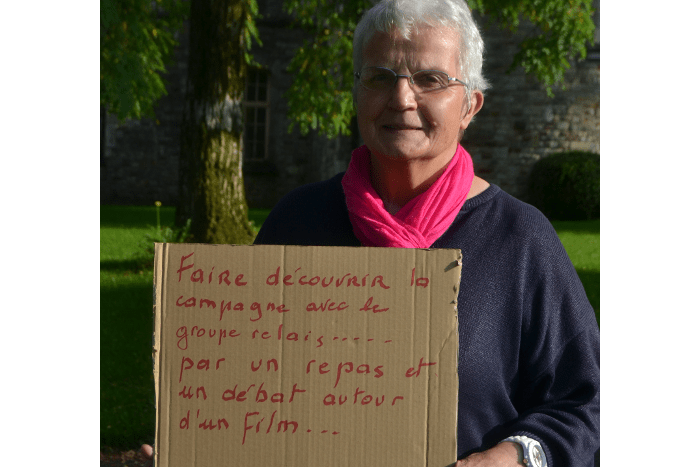 Faire découvrir la
campagne avec le
groupe relais.....
par un repas et
un débat autour
d'un film...